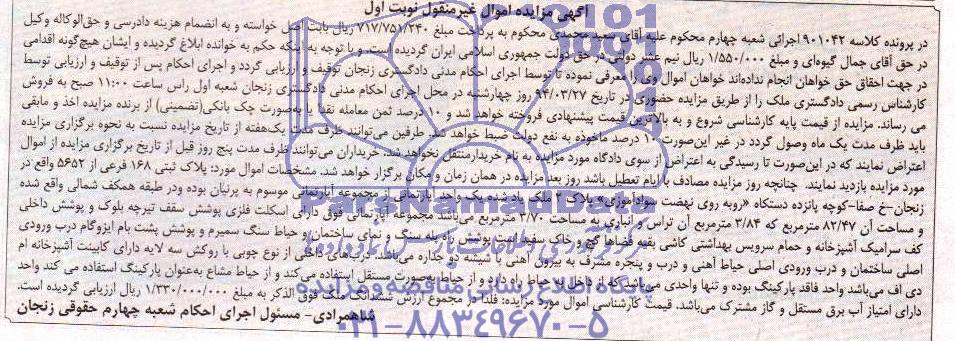 آگهی مزایده اموال غیرمنقول نوبت اول
در پرونده کلاسه ۹۰۱۰۴۲ اجرائی شعبه چهارم محکوم علیه آقای سعید محمدی محکوم به پرداخت مبلغ ۷۱۷/۷۵۷/۲۴۰ ریال بابت اصل خواسته و به انضمام هزینه دادرسی و حق‌الوکاله وکیل
در حق آقای جمال گیوه‌ای و مبلغ ۱/۵۵۰/۰۰۰ ریال نیم عشر دولتی در حق دولت جمهوری اسلامی ایران گردیده است. و با توجه به اینکه حکم به خوانده ابلاغ گردیده و ایشان هیچ‌گونه اقدامی
در جهت احقاق حق خواهان انجام نداده‌اند خواهان اموال وی را معرفی نموده تا توسط اجرای احکام مدنی دادگستری زنجان توقیف و ارزیابی گردد و اجرای احکام پس از توقیف و ارزیابی توسط
کارشناس رسمی دادگستری ملک را از طریق مزایده حضوری در تاریخ ۹۴/۰۳/۲۷ روز چهارشنبه در محل اجرای احکام مدنی دادگستری زنجان شعبه اول راس ساعت ۱۱:۰۰ صبح به فروش
می رساند. مزایده از قیمت پایه کارشناسی شروع و به بالاترین قیمت پیشنهادی فروخته خواهد شد و ۱۰ درصد ثمن معامله نقداً یا به‌صورت چک بانکی(تضمینی) از برنده مزایده اخذ و مابقی
باید ظرف مدت یک ماه وصول گردد در غیر این‌صورت ۱۰ درصد ماخوذه به نفع دولت ضبط خواهد شد. طرفین می‌توانند ظرف مدت یک‌هفته از تاریخ مزایده نسبت به نحوه برگزاری مزایده
اعتراض نمایند که در این‌صورت تا رسیدگی به اعتراض از سوی دادگاه مورد مزایده به نام خریدار منتقل نخواهد شد. خریداران می‌توانند ظرف مدت پنج روز قبل از تاریخ برگزاری مزایده از اموال
مورد مزایده بازدید نمایند. چنانچه روز مزایده مصادف با ایام تعطیل باشد روز بعد مزایده در همان زمان و مکان برگزار خواهد شد. مشخصات اموال مورد: پلاک ثبتی ۱۶۸ فرعی از ۵۶۵۲ واقع در
زنجان-خ صفا-کوچه پانزده دستگاه «روبه روی نهضت سوادآموزی» پلاک ۲ ملک یاد شده یک واحد آپارتمانی از مجموعه آپارتمانی موسوم به پرنیان بوده ودر طبقه همکف شمالی واقع شده
و مساحت آن ۸۲/۴۷ مترمربع که ۳/۸۴ مترمربع آن تراس و انباری به مساحت ۳/۷۰ مترمربع می‌باشد مجموعه آپارتمانی فوق دارای اسکلت فلزی پوشش سقف تیرچه بلوک و پوشش داخلی
کف سرامیک آشپزخانه و حمام سرویس بهداشتی کاشی بقیه فضاها گچ و خاک سفید است پوشش راه پله سنگ و نمای ساختمان و حیاط سنگ سمیرم و پوشش پشت بام ایزوگام درب ورودی
اصلی ساختمان و درب ورودی اصلی حیاط آهنی و درب و پنجره مشرف به بیرون آهنی با شیشه دو جداره می‌باشد درب‌های داخلی از نوع چوبی با روکش سه لایه دارای کابینت آشپزخانه ام
دی اف می‌باشد واحد فاقد پارکینگ بوده و تنها واحدی می‌باشد که از داخل به حیاط راه دارد و از حیاط به‌صورت مستقل استفاده می‌کند و از حیاط مشاع به‌عنوان پارکینگ استفاده می کند واحد
دارای امتیاز آب برق مستقل و گاز مشترک می‌باشد. قیمت کارشناسی اموال مورد مزایده: فلذا در مجموع ارزش ششدانگ ملک فوق الذکر به مبلغ ۱/۳۳۰/۰۰۰/۰۰۰ ریال ارزیابی گردیده است.
شاهمرادی- مسئول اجرای احکام شعبه چهارم حقوقی زنجان
ParsNamadData
پایگاه اطلاع رسانی مناقصه و مزایده
۰۲۱-۸۸۳۴۹۶۷۰-۵